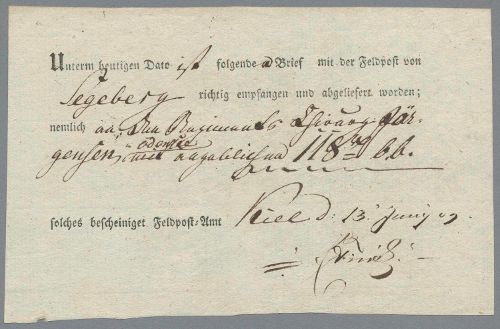 Unterm heutigen Dato ist folgender Brief mit der Feldpost von
Segeberg richtig empfangen und abgeliefert worden;
nemlich an den Regiments Chirurg Jür-
gensen, mit angeblich 118
solches bescheiniget Feldpost-Amt Kiel d: 13 Juny 09